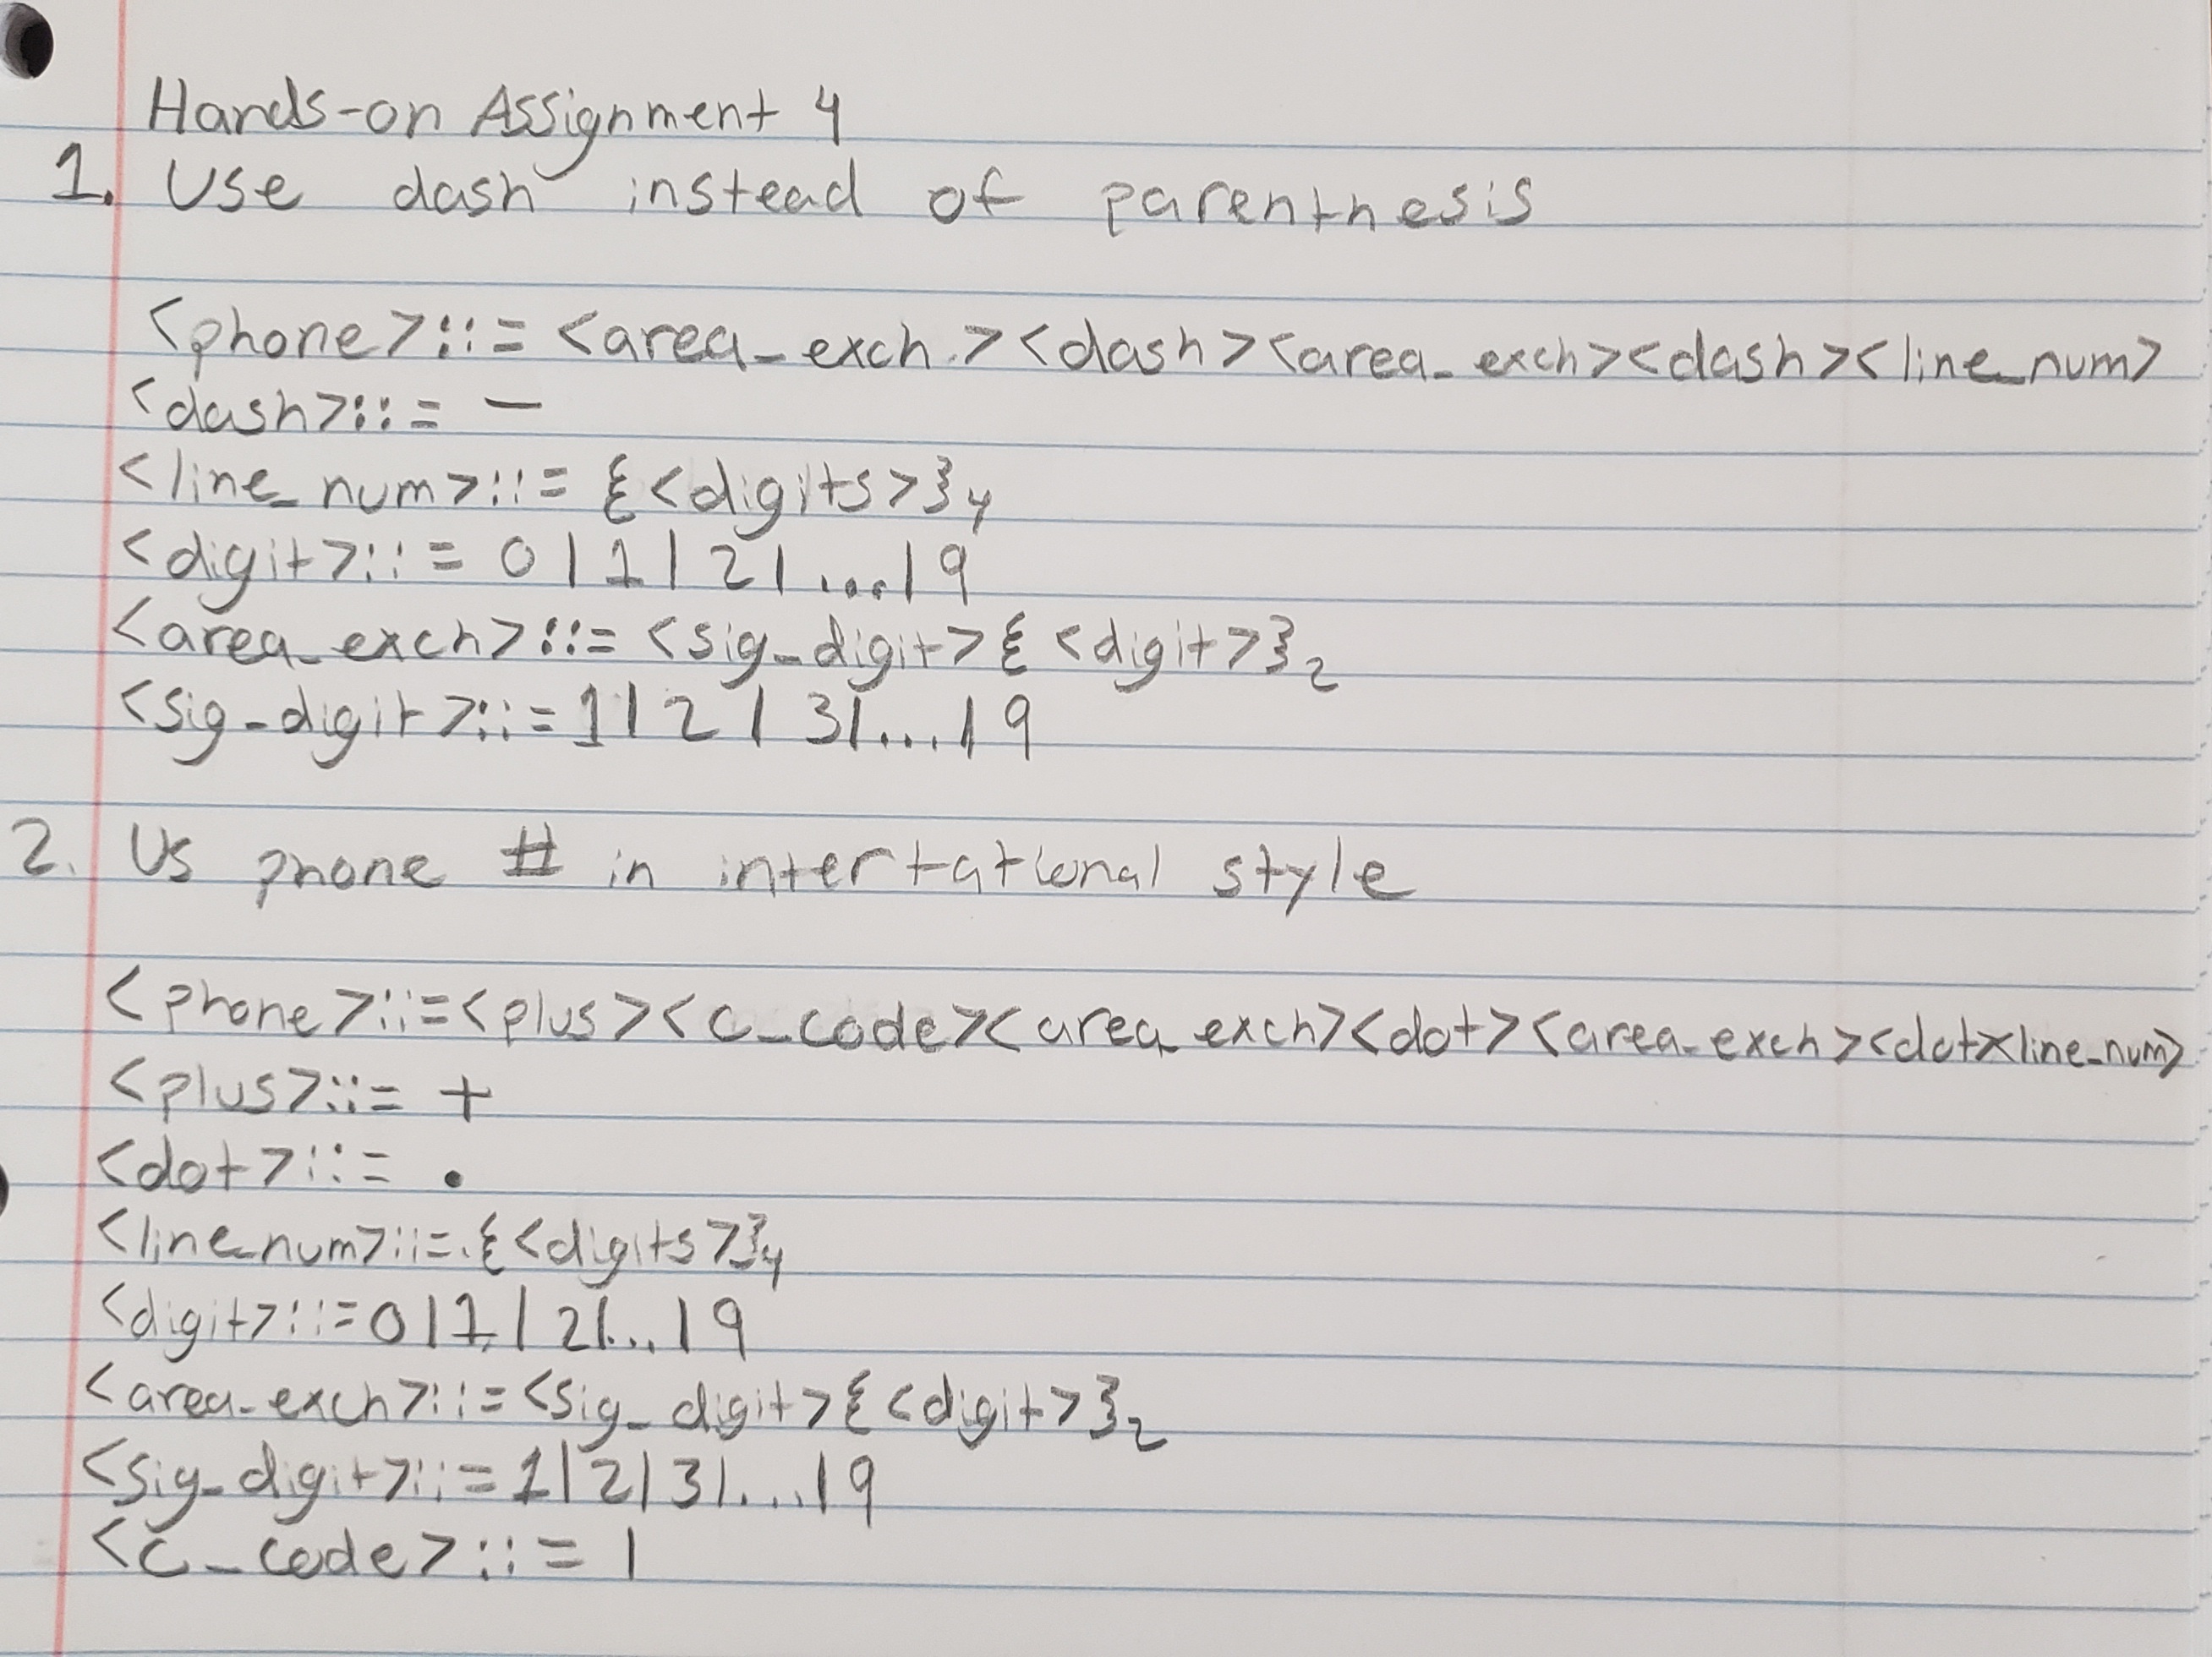 Hands-on Assignment 4
1. Use dash instead of parenthesis
<phone>::= <area_exch.><dash><area_exch><dash><line_num>
<dash>::= -
<line_num>::= {<digits>}4
<digit>::= 0|1|2|...|9
<area_exch>::= <sig_digit>{<digit>}2
<sig_digit>::=1|2|3|...|9
2. Us phone # in intertational style
<phone>::=<plus><c_code><area_exch><dot><area_exch><dot><line_num>
<plus>::= +
<dot>::= .
<line_num>::=.{<digits>}4
<digit>::=0|1|2|...|9
<area_exch>::=<sig_digit>{<digit>}2
<sig_digit>::=1|2|3|...|9
<c_code>::= 1